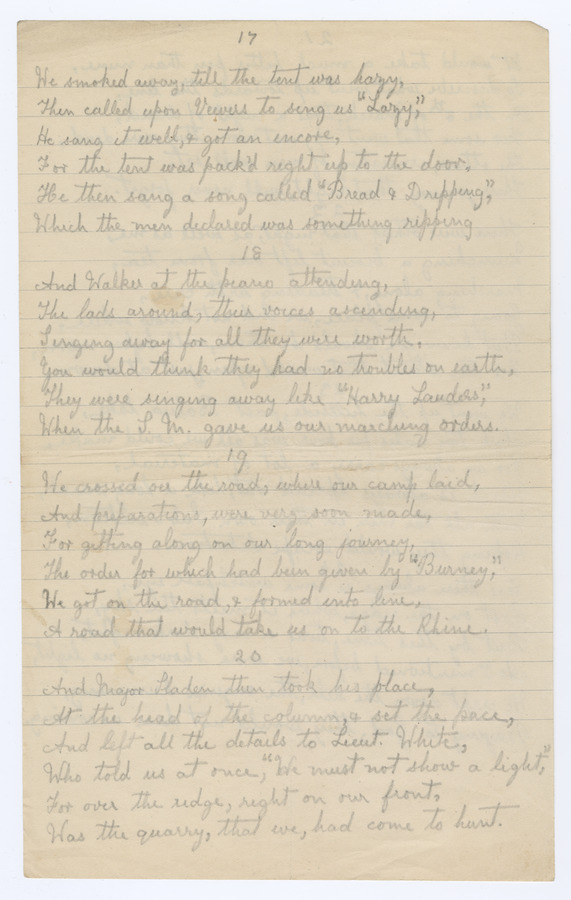 17
We smoked away, till the tent was hazy,
Then called upon Vivers to sing us "Lazy,"
He sang it well, & got an encore,
For the tent was pack'd right up to the door.
He then sang a song called "Bread & Dripping",
Which the men declared was something ripping
18
And Walker at the piano attending,
The lads around, their voices ascending,
Singing away for all they were worth,
You would think they had no troubles on earth,
They were singing away like "Harry Lauders",
When the S. M. gave us our marching orders.
19
We crossed oer the road, where our camp laid,
And preparations, were very soon made,
For getting along on our long journey,
The order for which had been given by "Burney,"
We got on the road, & formed into line,
A road that would take us on to the Rhine.
20
And Major Sladen then took his place,
At the head of the column, & set the pace,
And left all the details to Lieut. White,
Who told us at once, "We must not show a light,"
For over the ridge, right on our front,
Was the quarry, that we, had come to hunt.